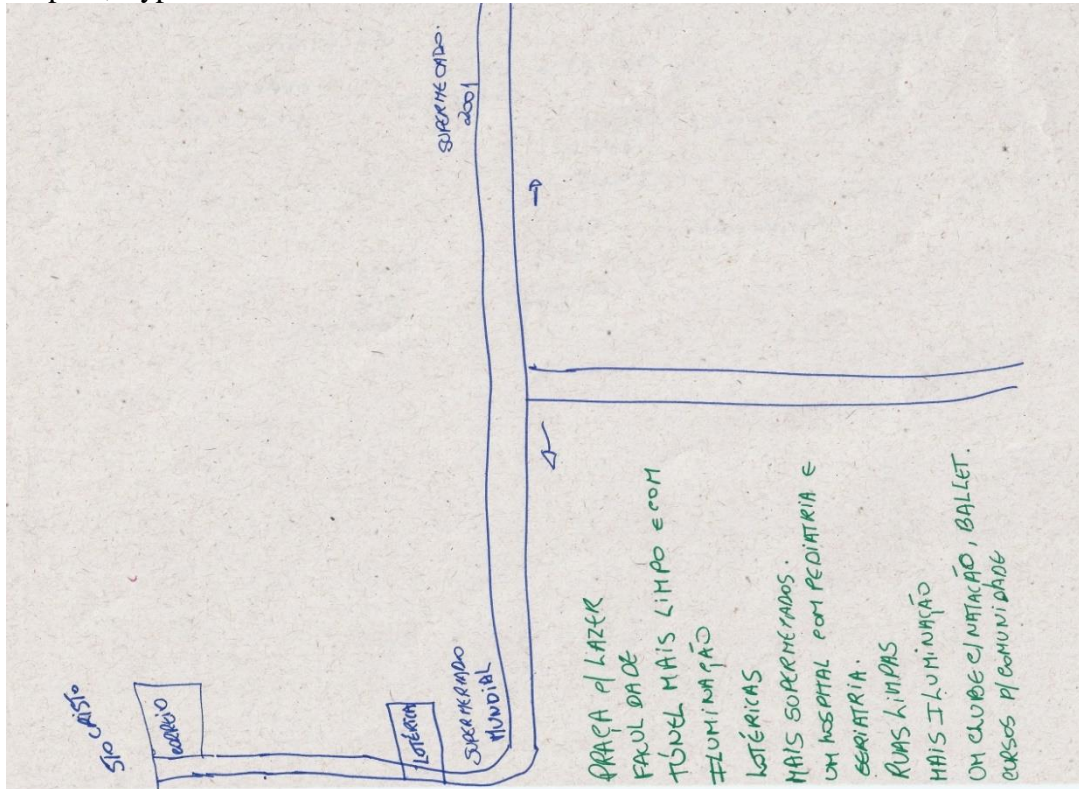 STO CRISTO
CORREIO
LOTÉRICA
SUPERMERCADO
MUNDIAL
SUPERMECADO.
2001
PRAÇA P/ LAZER
FACULDADE
TÚNEL MAIS LIMPO E COM
ILUMINAÇÃO
LOTÉRICAS
MAIS SUPERMECADOS.
UM HOSPITAL COM PEDIATRIA E
GERIATRIA.
RUAS LIMPAS
MAIS ILUMINAÇÃO
UM CLUBE C/ NATAÇÃO, BALLET.
CURSOS P/ COMUNIDADE